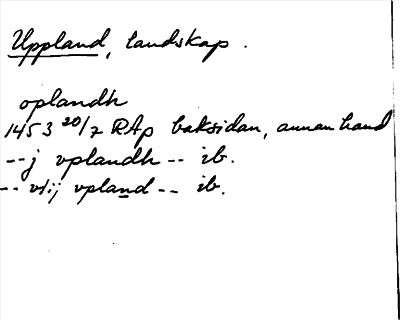 Uppland, landskap.
oplandh
1453 20/7 RAp baksidan, annan hand
--j vplandh -- ib.
-- vtij vpland -- ib.